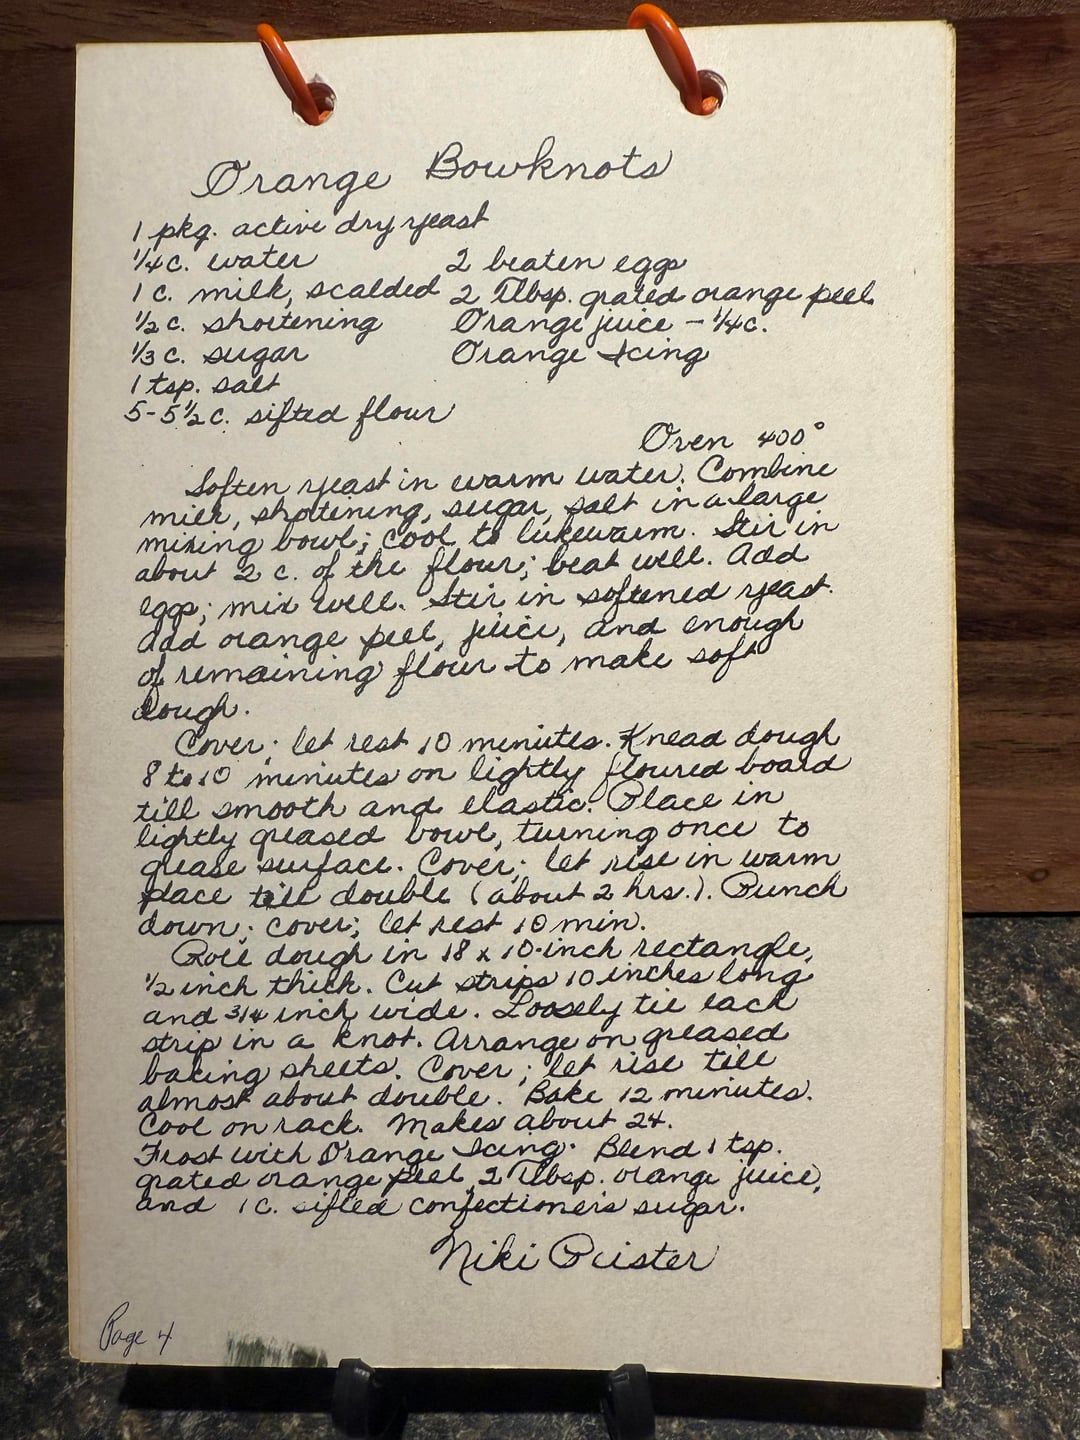 Orange Bowknots
1 pkg. active dry yeast
1/4 c. water
1 c. milk, scalded
1/2 c. shortening
1/3 c. sugar
1 tsp. salt
5-5 1/2 c. sifted flour
2 beaten eggs
2 Tbsp. grated orange peel
Orange juice - 1/4 c.
Orange Icing
Oven 400°
Soften yeast in warm water. Combine
milk, shortening, sugar, salt in a large
mixing bowl; cool to lukewarm. Stir in
about 2 c. of the flour; beat well. Add
eggs; mix well. Stir in softened yeast.
Add orange peel, juice, and enough
of remaining flour to make soft
dough.
Cover; let rest 10 minutes. Knead dough
8 to 10 minutes on lightly floured board
till smooth and elastic. Place in
lightly greased bowl, turning once to
grease surface. Cover; let rise in warm
place till double (about 2 hrs.). Punch
down; cover; let rest 10 min.
Roll dough in 18 x 10-inch rectangle,
1/2 inch thick. Cut strips 10 inches long
and 3/4 inch wide. Loosely tie each
strip in a knot. Arrange on greased
baking sheets. Cover; let rise till
almost about double. Bake 12 minutes.
Cool on rack. Makes about 24.
Frost with Orange Icing. Blend 1 tsp.
grated orange peel, 2 Tbsp. orange juice,
and 1 c. sifted confectioner's sugar.
Niki
Page 4